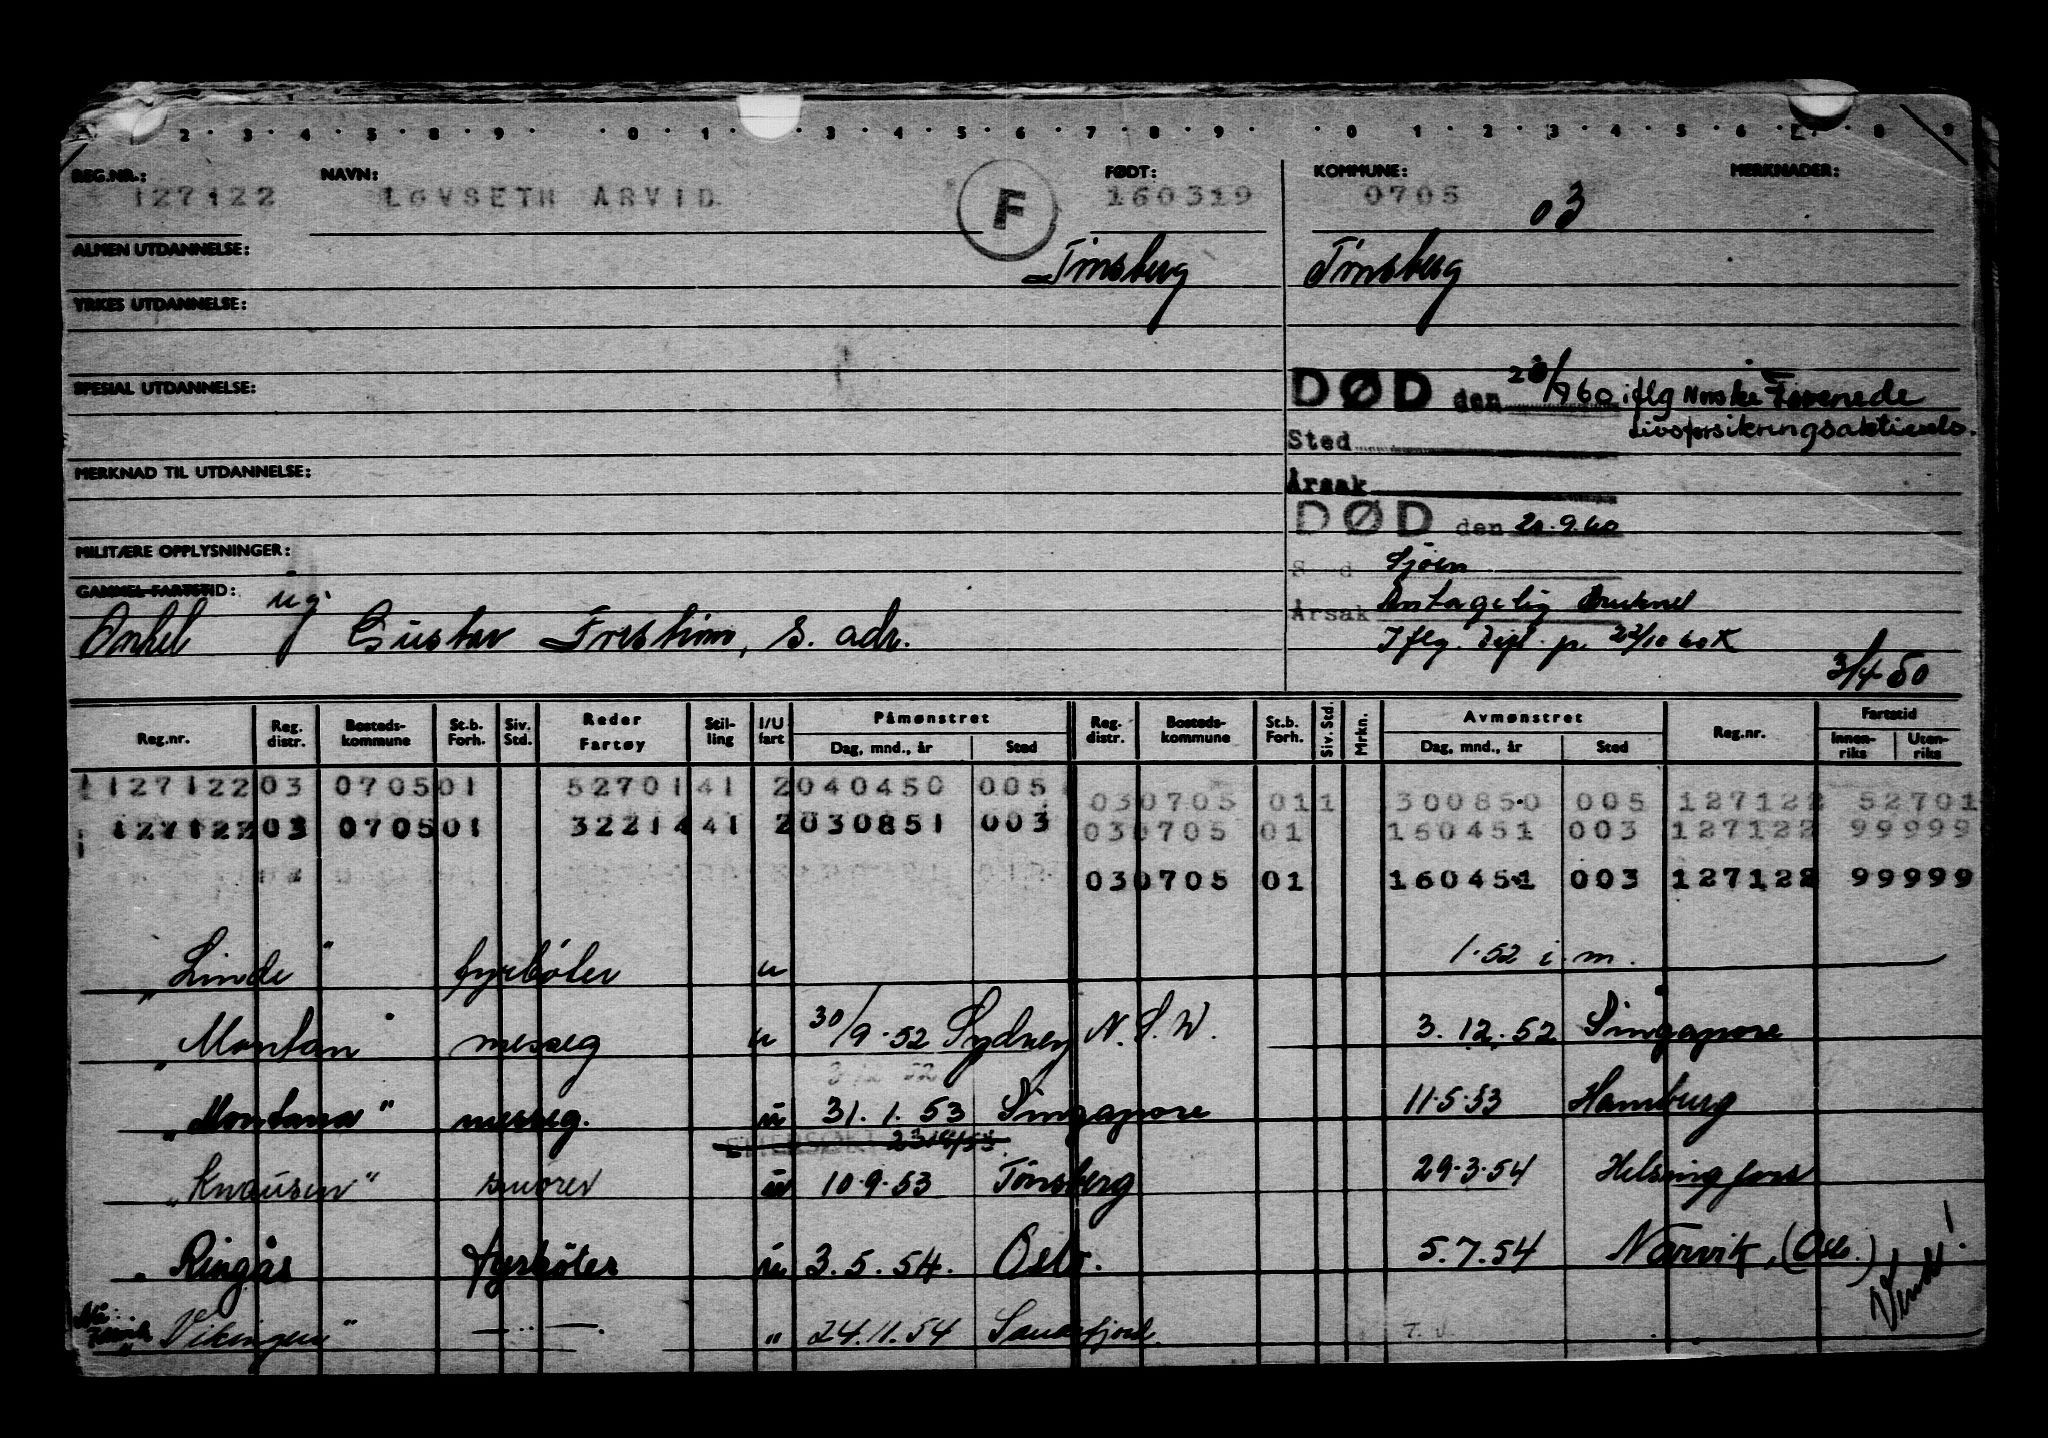 2 · 3 · 4 · 5 · 8 · 9 · 0 · 1 · 3 · 4 · 5 · 6 · 7 · 8 · 9 · · 0 1 · 2 · 3 · 4 · 5 · 6 · 7 · 8 9
REG.NR.: NAVN: FØDT: KOMMUNE: MERKNADER:
127122 LØVSETH ARVID F 160319 0705 03
ALMEN UTDANNELSE: Tönsberg Tönsberg
YRKES UTDANNELSE:
SPESIAL UTDANNELSE: DØD den 1960 iflg Norske Forenede
Livsforsikringsaktiesels.
Sted
MERKNAD TIL UTDANNELSE: Årsak
DØD den 20.9.60
MILITÆRE OPPLYSNINGER: Sted Sjøen
GAMMEL FARTSTID: ug. Årsak Antagelig druknet
Onkel Gustav s. adr. Iflg. p. 22/10 60 K
3/4 50
Reg.nr. Reg. distr. Bosteds-kommune St.b. Forh. Siv. Std. Reder Fartøy Stil-ling I/U fart Påmønstret Dag, mnd., år Sted Reg. distr. Bosteds-kommune St.b. Forh. Siv. Std. Mrkn. Avmønstret Dag, mnd., år Sted Reg.nr. Fartstid Innen-riks Uten-riks
127122 03 0705 01 52701 41 2 040450 005 03 0705 01 1 300850 005 127122 52701
127122 03 0705 01 32214 41 2 030851 003 03 0705 01 160451 003 127122 99999
03 0705 01 160451 003 127122 99999
„Linde" fyrböter u 1.52 i.m.
„Montan" messeg u 30/9.52 Sydney N.S.W. 3.12.52 Singapore
„Montana" messeg. u 31.1.53 Singapore 11.5.53 Hamburg
„Knausen" smörer u 10.9.53 Tönsberg 29.3.54 Helsingfors
„Ringås fyrböter u 3.5.54. Oslo. 5.7.54 Narvik, (Oslo.)
„Vikingen" — " — „ 24.11.54 Sandefjord
Vend!